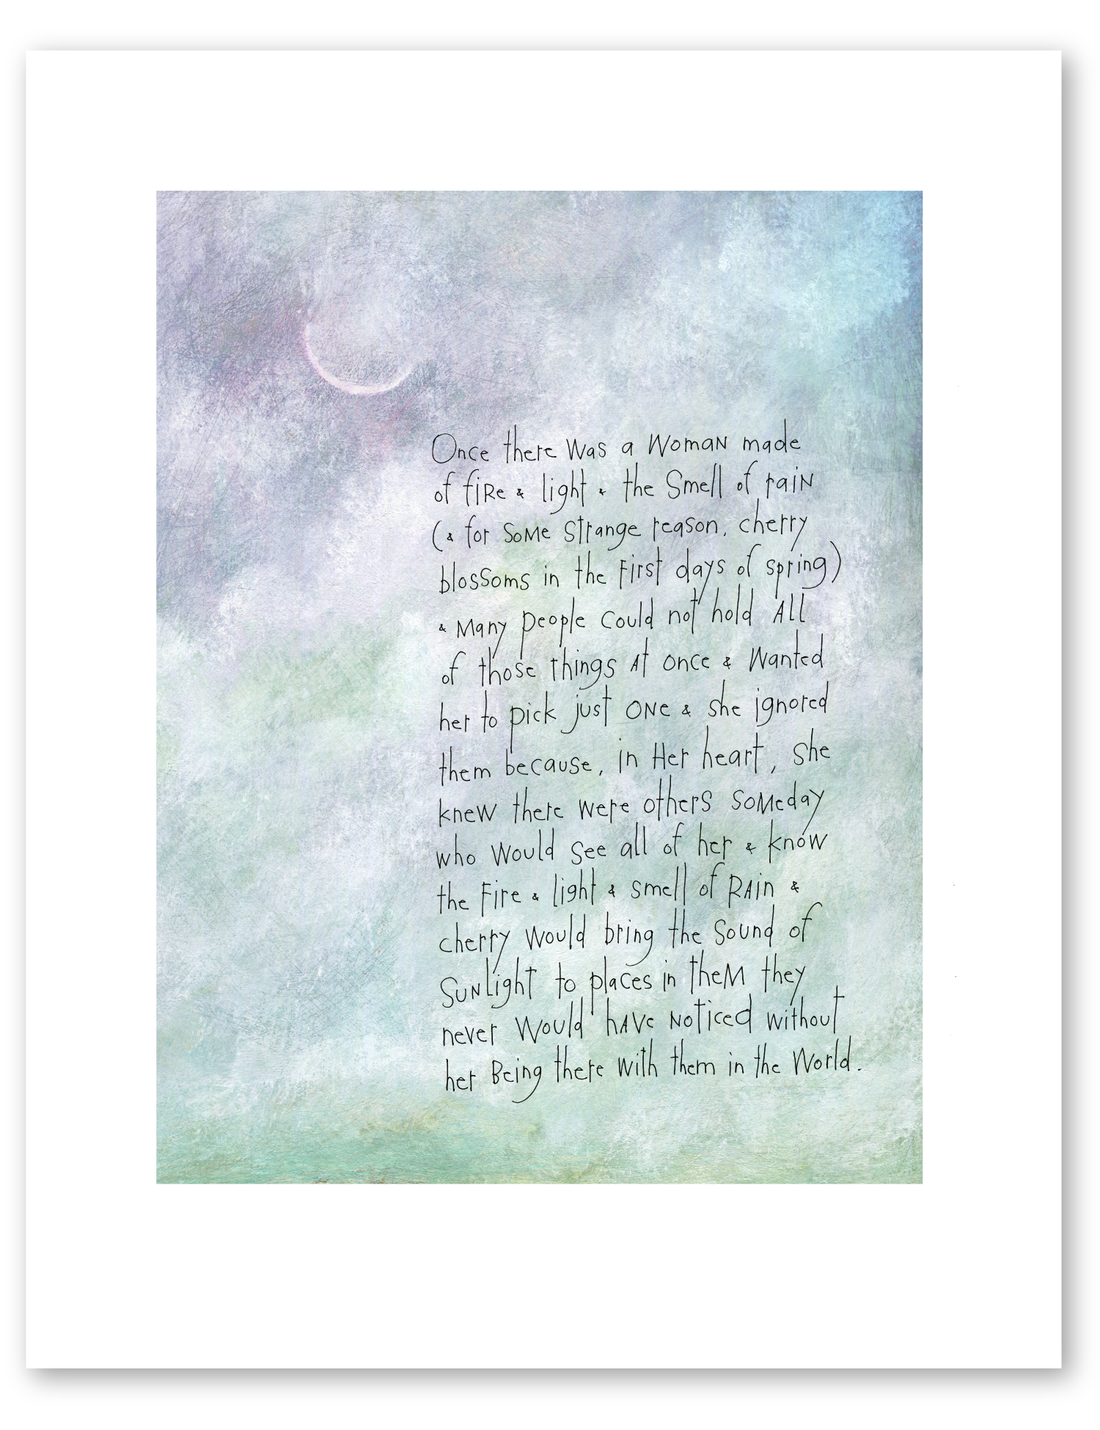 Once there was a woman made
of fire & light & the smell of rain
(& for some strange reason, cherry
blossoms in the first days of spring)
& many people could not hold all
of those things at once & wanted
her to pick just one & she ignored
them because, in her heart, she
knew there were others someday
who would see all of her & know
the fire & light & smell of rain &
cherry would bring the sound of
sunlight to places in them they
never would have noticed without
her being there with them in the world.